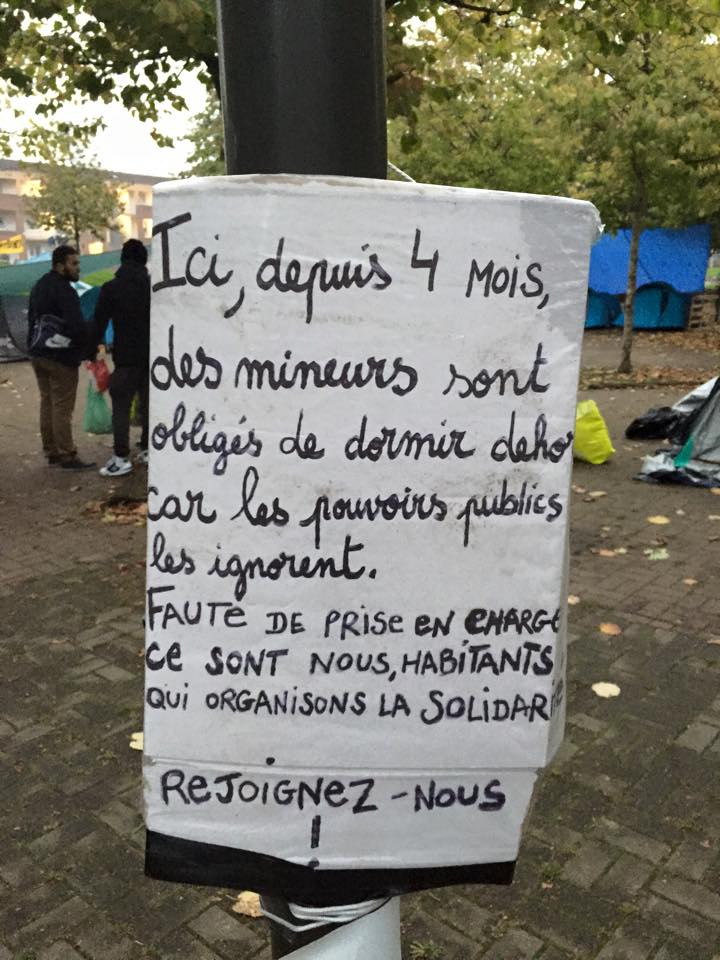 Ici, depuis 4 MOIS,
des mineurs sont
obligés de dormir deho
car les pouvoirs publics
les ignorent.
FAUTE DE PRISE EN CHARGE
CE SONT NOUS, HABITANTS
QUI ORGANISONS LA SOLIDARITE
REJOIGNEZ-NOUS
!